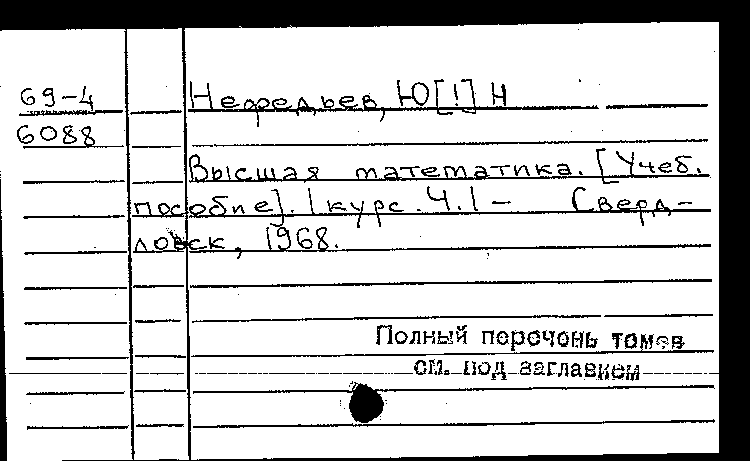 69-4 Нефедьев, Ю[!] Н
6088
Высшая математика. [Учеб.
пособие]. 1 курс. Ч.1 - Сверд-
ловск, 1968.
Полный перечень томов
см. под заглавием